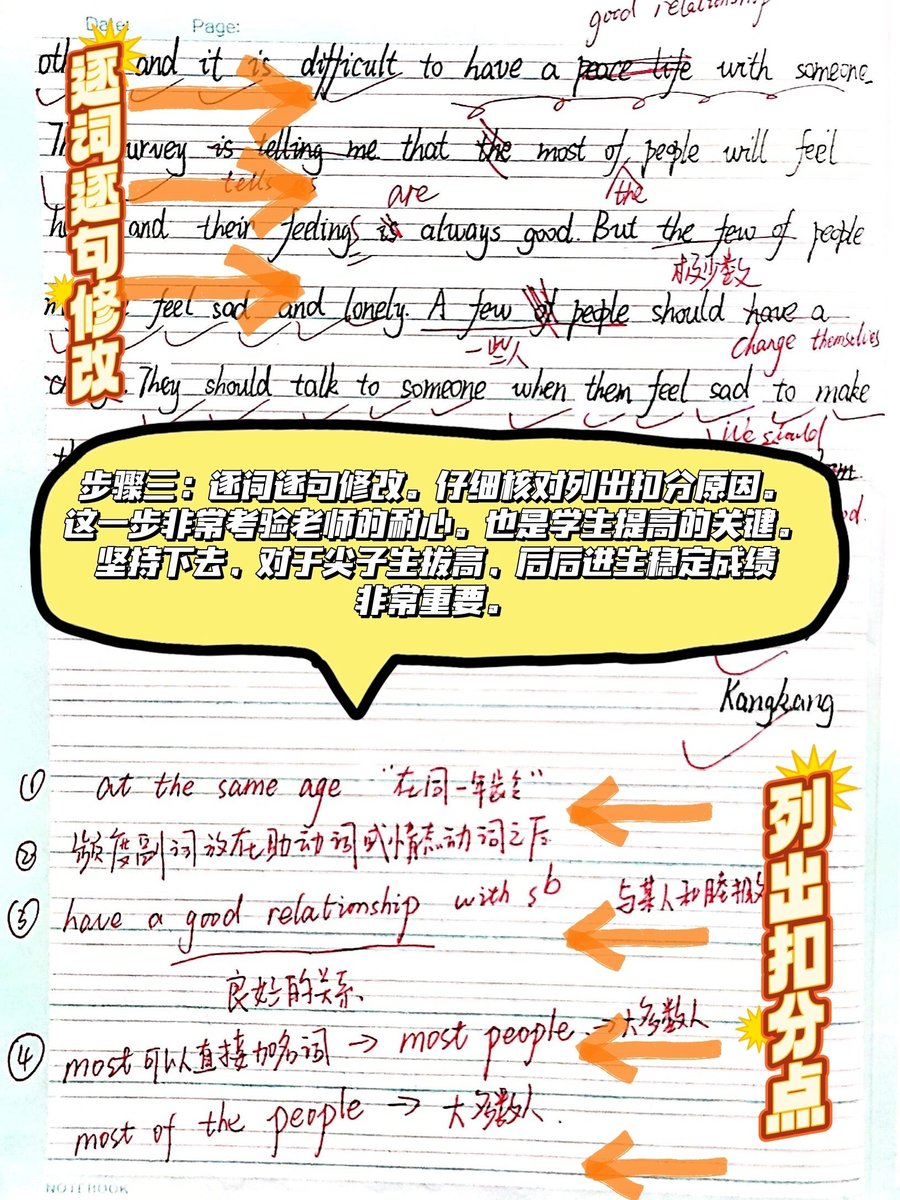 Date: Page:
good relationship
and it is difficult to have a peace life with someone
survey is telling me that the most of people will feel
tells us
are
the
and their feelings is always good. But the few of people
极少数
feel sad and lonely. A few of people should have a
一些人
change themselves
They should talk to someone when them feel sad to make
We should
逐词逐句修改
步骤三：逐词逐句修改。仔细核对列出扣分原因。
这一步非常考验老师的耐心。也是学生提高的关键。
坚持下去、对于尖子生拔高、后后进生稳定成绩
非常重要。
Kangkang
列出扣分点
① at the same age "在同一年龄"
② 频度副词放在助动词或情态动词之后
③ have a good relationship with sb 与某人和睦相处
良好的关系
④ most可以直接加名词 → most people → 大多数人
most of the people → 大多数人.
NOTEBOOK